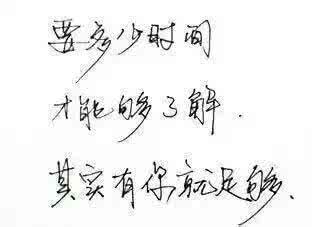 要多少时间
才能够了解.
其实有你就足够.